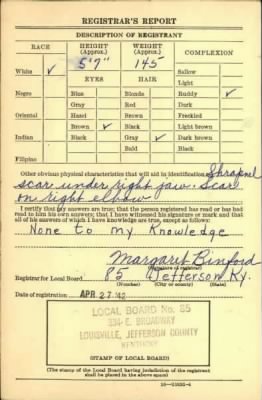 REGISTRAR'S REPORT
DESCRIPTION OF REGISTRANT
RACE HEIGHT (Approx.) WEIGHT (Approx.) COMPLEXION
5'7" 145
White ✓ EYES HAIR Sallow
Light
Negro Blue Blonde Ruddy ✓
Gray Red Dark
Oriental Hazel Brown Freckled
Brown ✓ Black Light brown
Indian Black Gray ✓ Dark brown
Bald Black
Filipino
Other obvious physical characteristics that will aid in identification Shrapnel
scar under right jaw. Scar
on right elbow
I certify that my answers are true; that the person registered has read or has had
read to him his own answers; that I have witnessed his signature or mark and that
all of his answers of which I have knowledge are true, except as follows:
None to my Knowledge
Margaret Binford
(Signature of registrar)
Registrar for Local Board 85 Jefferson Ky.
(Number) (City or county) (State)
Date of registration APR 27 '42
LOCAL BOARD No. 85
334 E. BROADWAY
LOUISVILLE, JEFFERSON COUNTY
KENTUCKY
(STAMP OF LOCAL BOARD)
(The stamp of the Local Board having jurisdiction of the registrant
shall be placed in the above space)